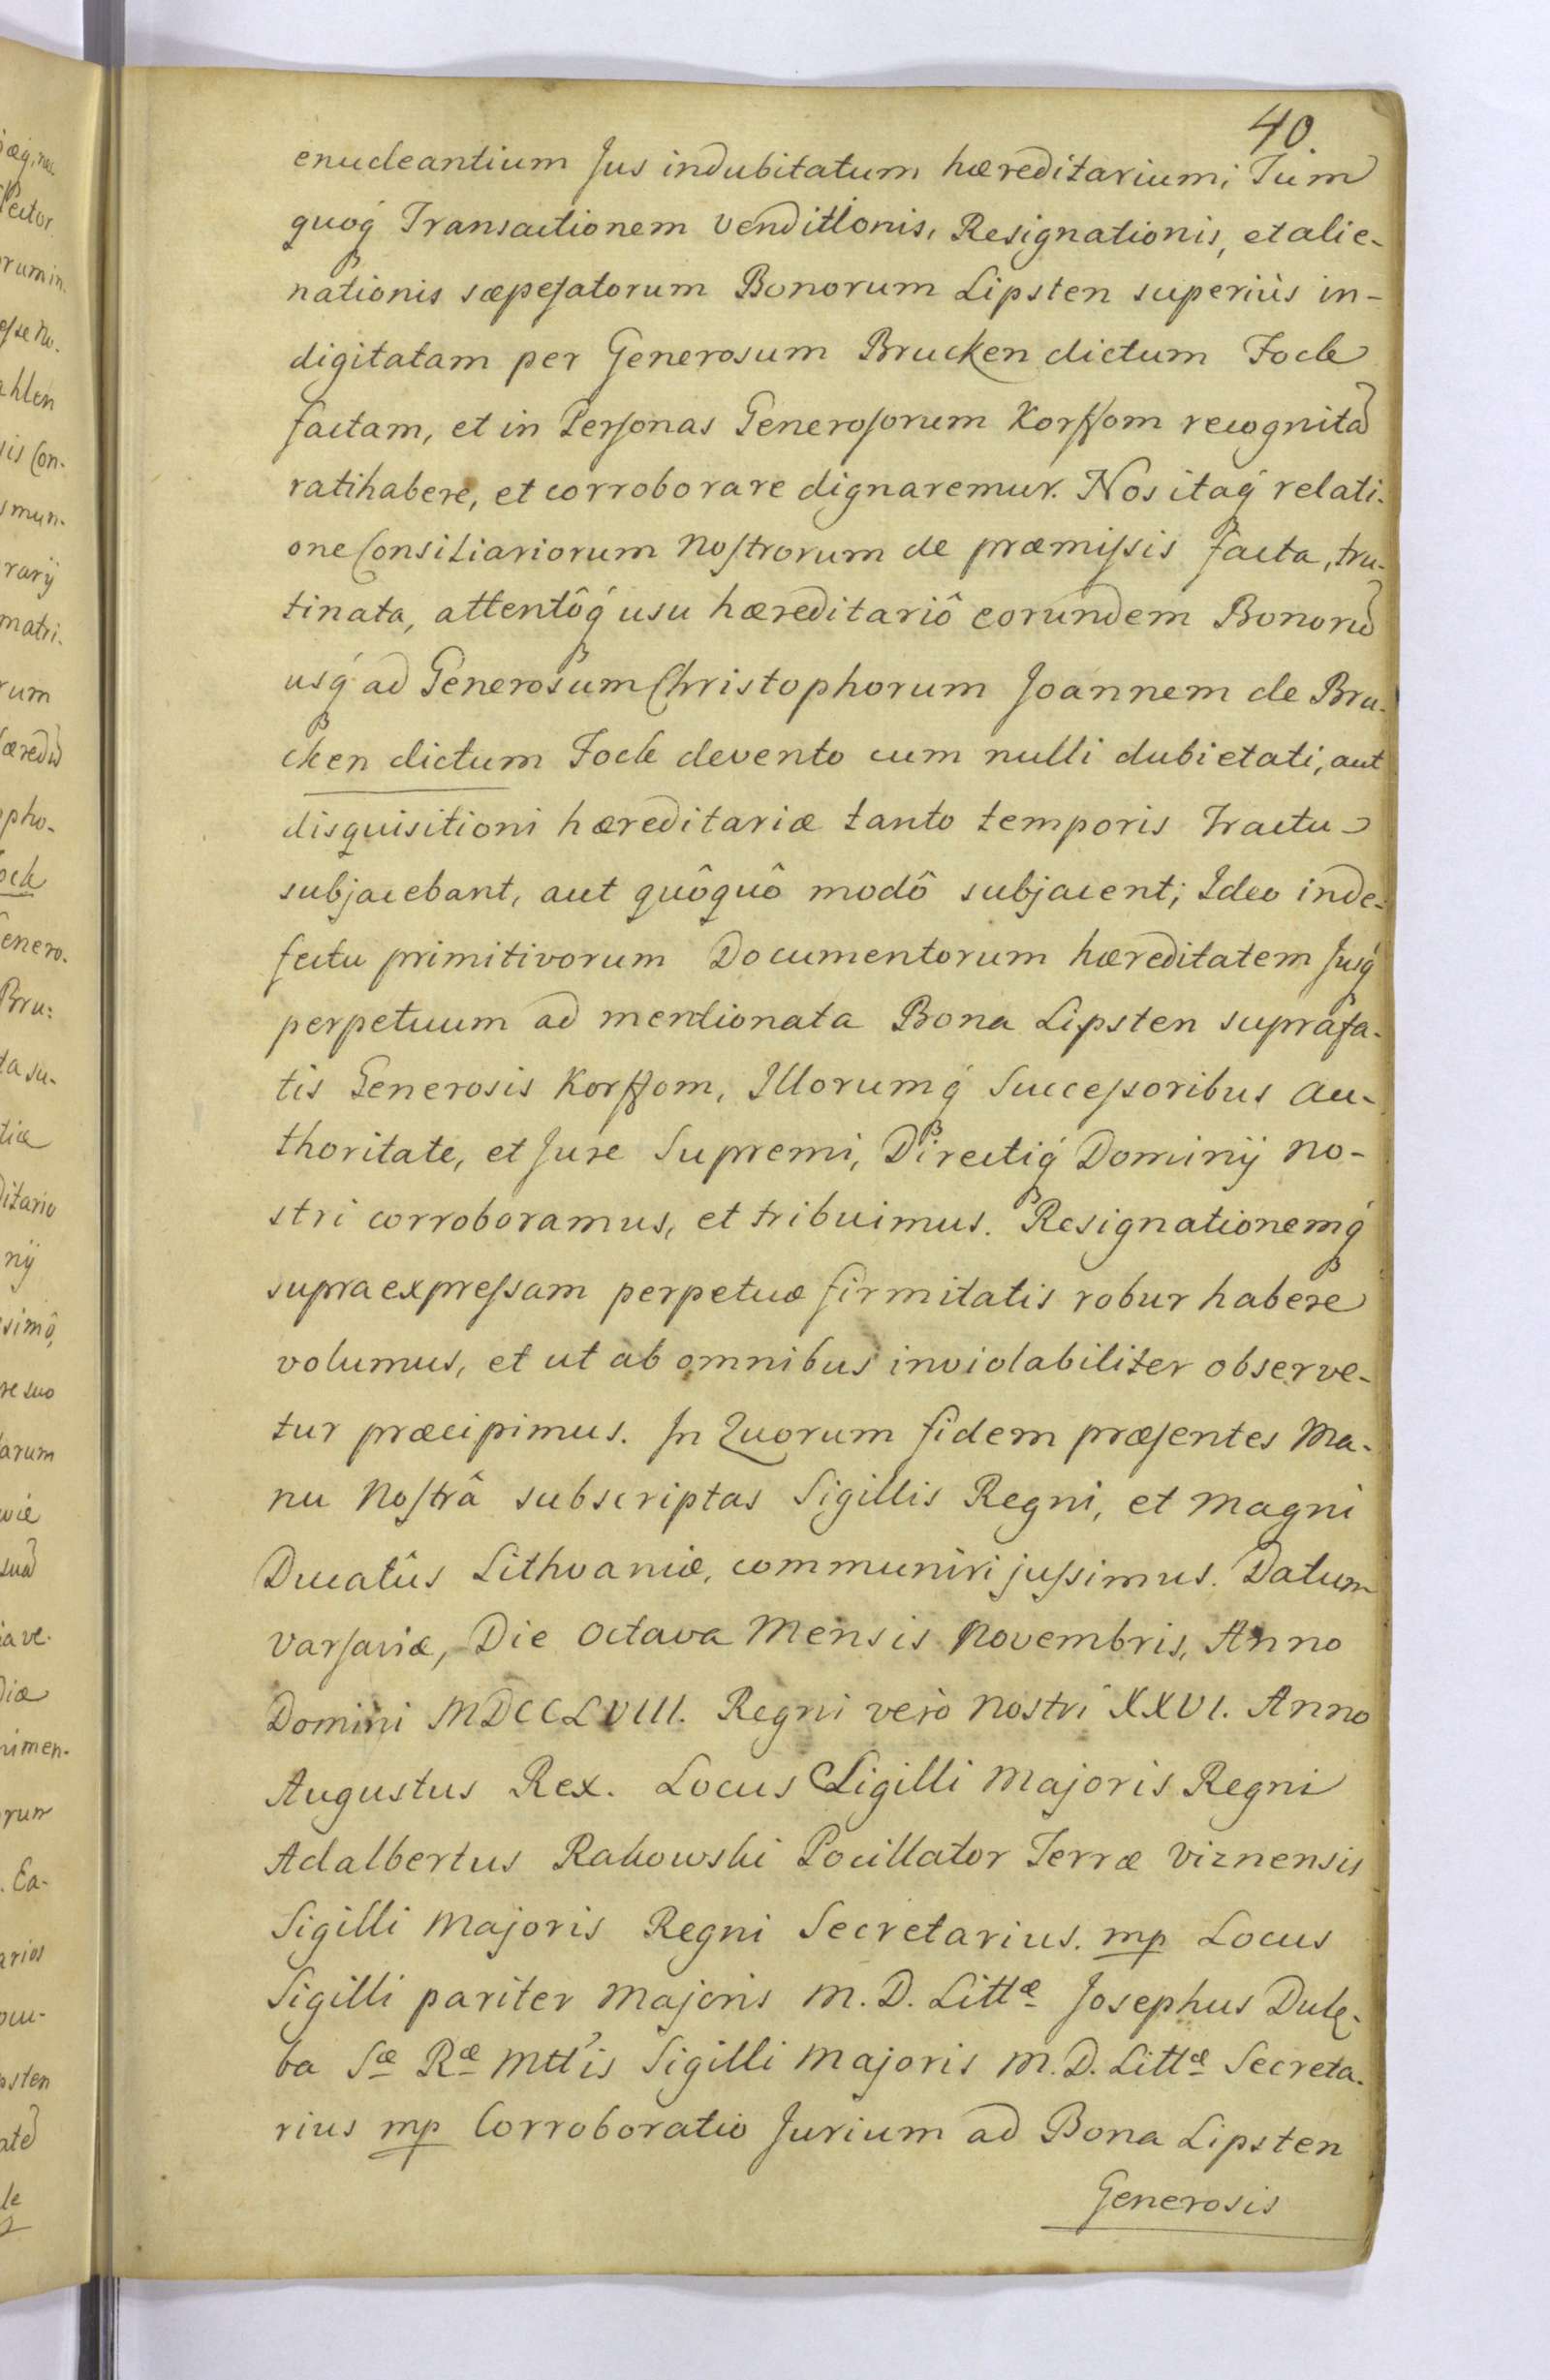 40.
enucleantium Jus indubitatum hæreditarium; Tum
quoq́ Transactionem venditionis, Resignationis, et alie-
nationis sæpefatorum Bonorum Lipsten superiùs in-
digitatam per Generosum Brucken dictum Fock
factam, et in Personas Generosorum Korffom recognitã
ratihabere, et corroborare dignaremur. Nos itaq́ relati-
one Consiliariorum Nostrorum de præmissis facta, tru-
tinata, attentôq́ usu hæreditariô eorundem Bonorũ
usq́ ad Generosum Christophorum Joannem de Bru-
cken dictum Fock devento cum nulli dubietati, aut
disquisitioni hæreditariæ tanto temporis tractu
subjacebant, aut quôquô modô subjacent; Ideo inde-
fectu primitivorum Documentorum hæreditatem Jusq́
perpetuum ad mentionata Bona Lipsten supráfa-
tis Generosis Korffom, Illorumq́ Successoribus au-
thoritate, et Jure Supremi, Directiq́ Dominij no-
stri corroboramus, et tribuimus. Resignationemq́
supra expressam perpetuæ firmitatis robur habere
volumus, et ut ab omnibus inviolabiliter observe-
tur præcipimus. In Quorum fidem præsentes Ma-
nu Nostrâ subscriptas Sigillis Regni, et Magni
Ducatûs Lithvaniæ, communiri jussimus. Datum
Varsaviæ, Die Octava Mensis Novembris, Anno
Domini MDCCLVIII. Regni verò Nostri XXVI. Anno
Augustus Rex. Locus Sigilli Majoris Regni
Adalbertus Rakowski Pocillator Terræ Viznensis
Sigilli Majoris Regni Secretarius. mp Locus
Sigilli pariter Majoris M. D. Littæ Josephus Dulę-
ba Sæ Ræ Mtt'is Sigilli Majoris M. D. Littæ Secreta-
rius mp Corroboratio Jurium ad Bona Lipsten
Generosis